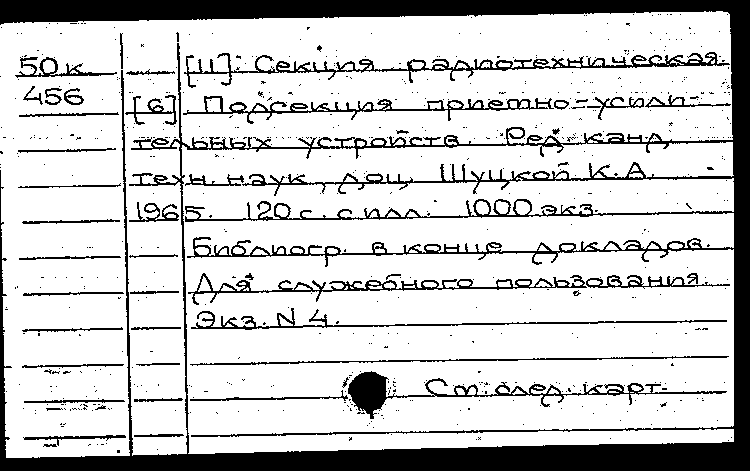 50к [11]. Секция радиотехническая.
456 [6] Подсекция приемно-усили-
тельных устройств. Ред. канд.
техн. наук, доц. Шуцкой К.А.
1965. 120 с. с илл. 1000 экз.
Библиогр. в конце докладов.
Для служебного пользования.
Экз. N 4.
См. след. карт.